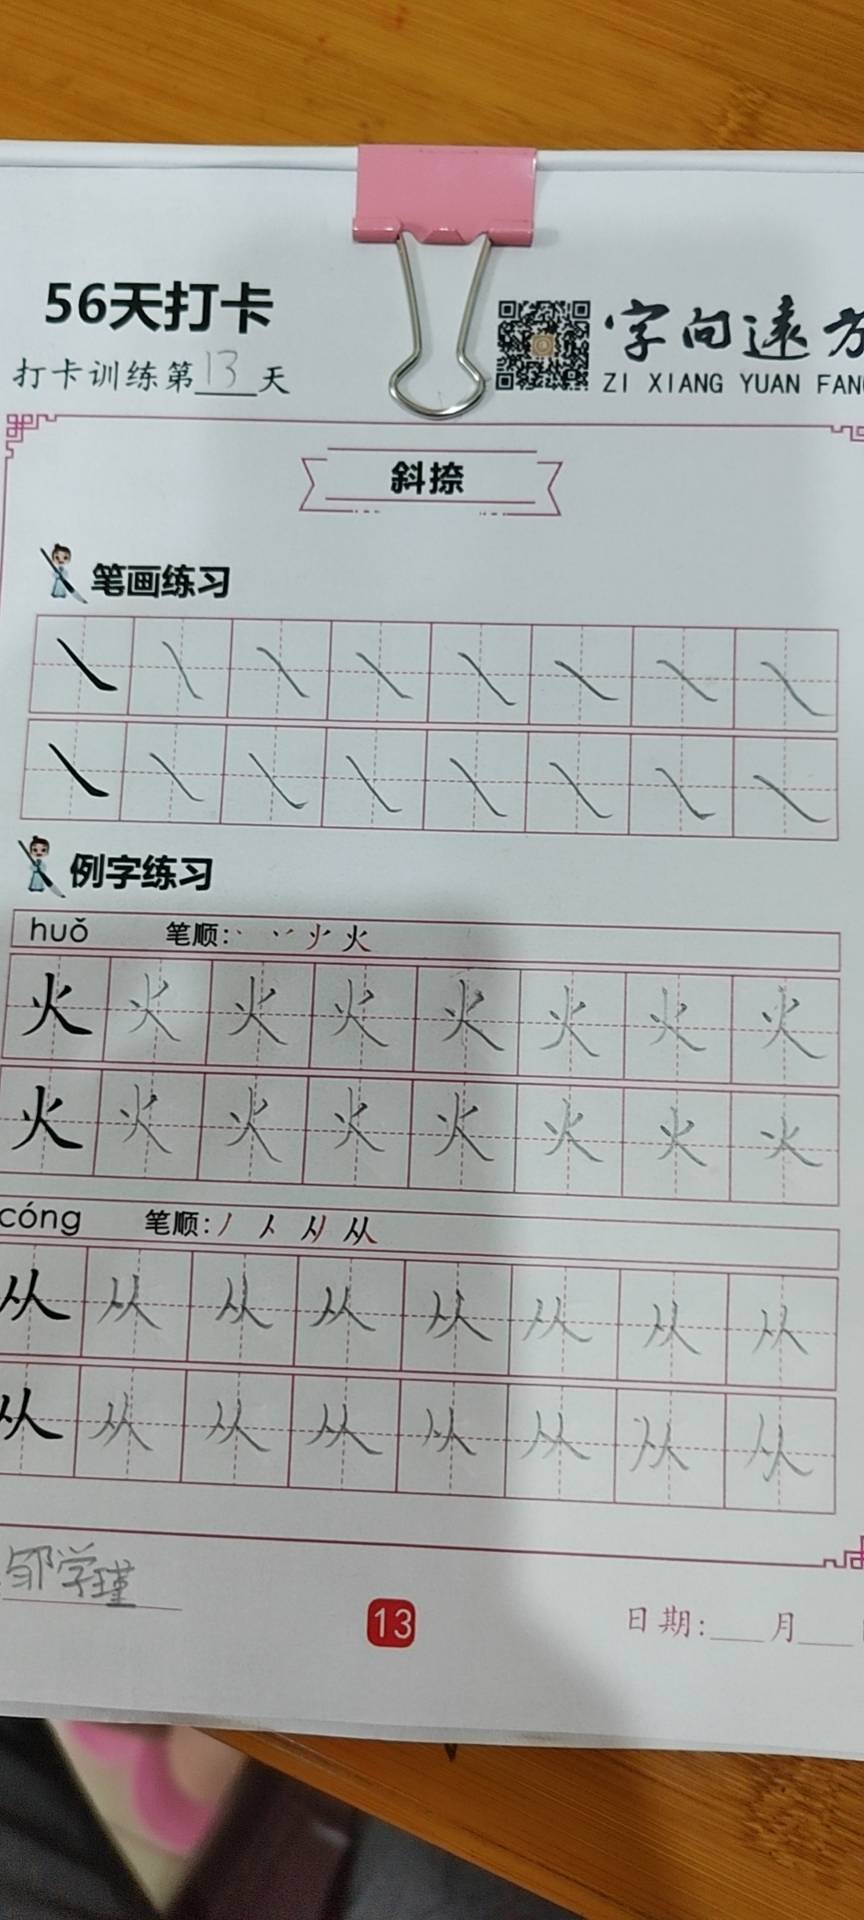 56天打卡
字向远方
打卡训练第13天
ZI XIANG YUAN FAN
斜捺
笔画练习
例字练习
huǒ 笔顺: 火
火 火 火 火 火 火 火 火
火 火 火 火 火 火 火 火
cóng 笔顺: 丿 人 从
从 从 从 从 从 从 从 从
从 从 从 从 从 从 从 从
邹学瑾
13
日期:___月___